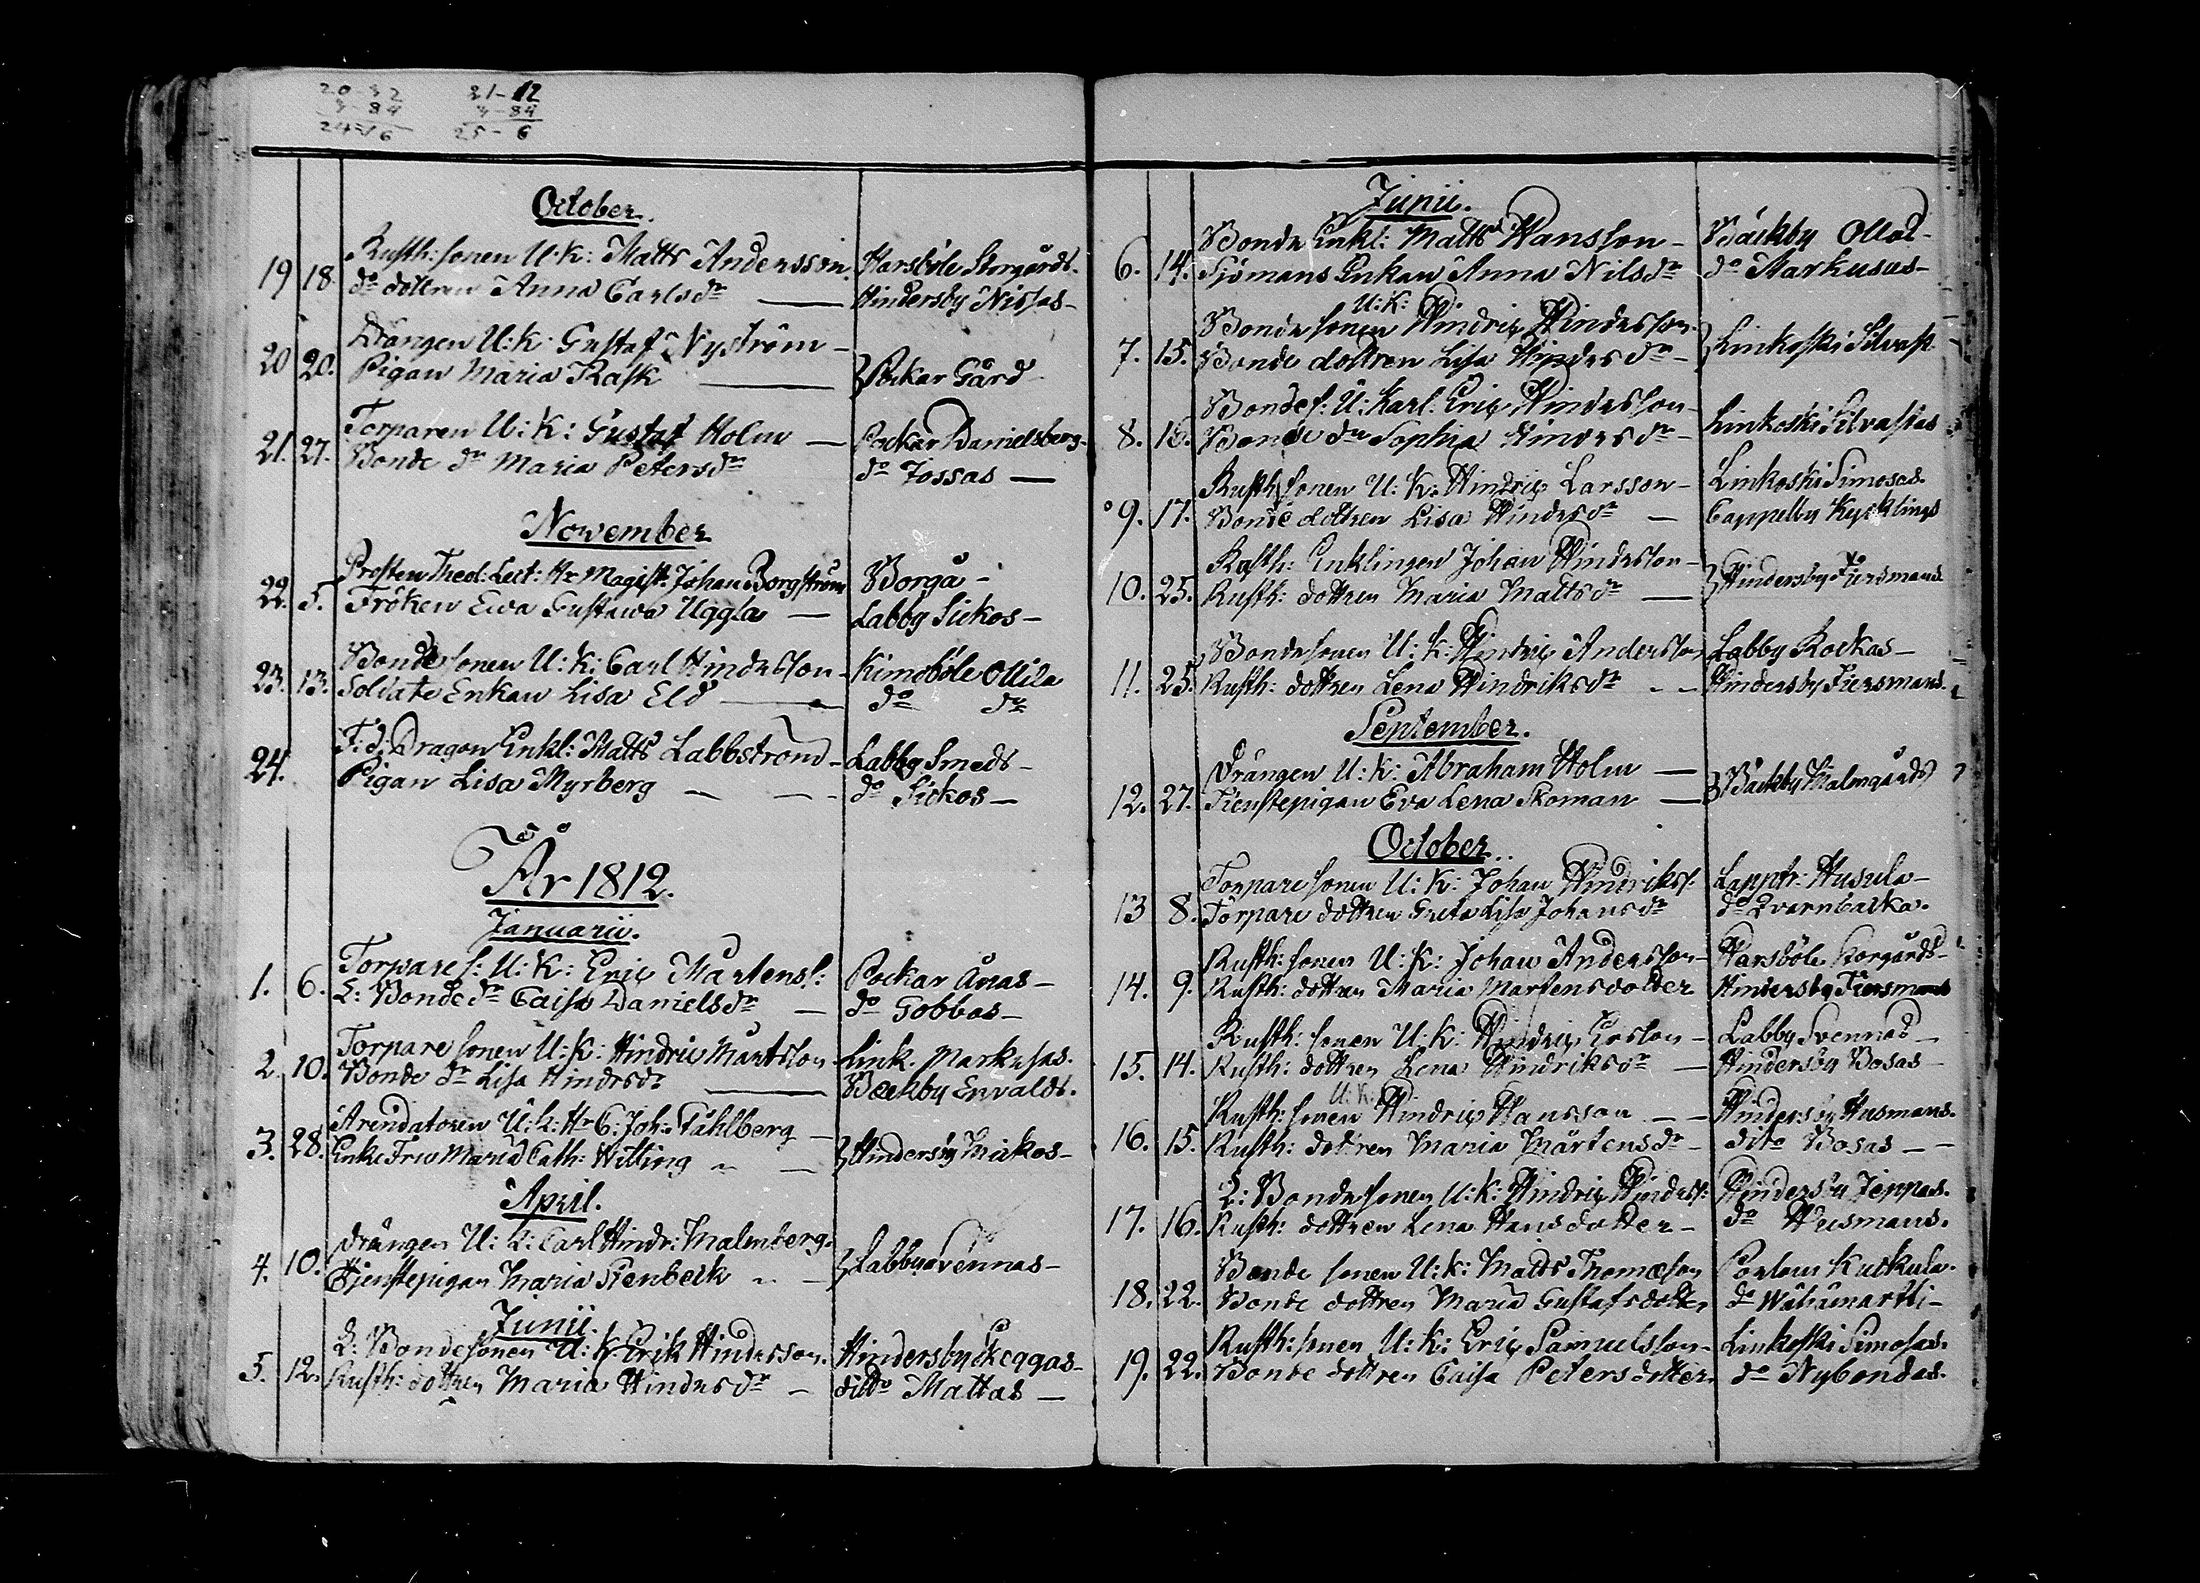 20-32 21-12
3-84 3-84
24-16 25-6
October.
19 18. Rusth: sonen U: K: Matts Andersson. Harsböle Storgårds.
do dottren Anna Carlsdr — Hindersby Nissas-
20 20. Drängen U: K: Gustaf Nyström -
Pigan Maria Rask — Pockar Gård
21. 27. Torparen U: K: Gustaf Holm — Pockar Danielsberg.
Bonde dr Maria Petersdr do Jossas —
November
22. 5. Prosten Theol: Lect: Hr Magist: Johan Borgström Borgå -
Fröken Ewa Gustawa Uggla — Labby Sickos -
23. 13. Bondesonen U: K: Carl Hindersson - Kimoböle Ollila
Soldate Enkan Lisa Eld — do do
24. F: d: Dragon Enkl: Matts Labbström - Labby Smeds -
Pigan Lisa Myrberg — — do Sickos —
År 1812.
Januarii.
1. 6. Torpare s: U: K: Eric Mårtenss: Pockar Ånas -
L: Bonde dr Caisa Danielsdr — do Gobbas -
2. 10. Torpare sonen U: K: Hindric Mårtsson Link. Markusas.
Bonde dr Lisa Hindrsdr — Backby Envalds.
3. 28. Arendatoren U: K: Hr C: Joh: Fåhlberg —
Enke Fru Maria Cath: Witting — Hindersby Mickos -
April.
4. 10. Drängen U: K: Carl Hindr: Malmberg.
Tjenstepigan Maria Stenbeck — Labby Svennas -
Junii.
5. 12. L: Bondesonen U: K: Erik Hindersson. Hindersby Skeggas -
Rusth: dottren Maria Hindersdr — ditto Mattas —
Junii.
6. 14. Bonde Enkl: Matts Hansson - Bäckby Ollas -
Sjömans Enkan Anna Nilsdr do Markusas -
U: K:
7. 15. Bonde sonen Hindric Hindersson.
Bonde dottren Lisa Hindersdr - Linkoski Silvast.
8. 16. Bondes: U: Karl. Eric Hindersson - Linkoski Silvastas
Bonde dr Sophia Hindersdr -
9. 17. Rusth: sonen U: K: Hindric Larsson - Linkoski Simosas.
Bonde dottren Lisa Hindersdr — Cappelby Kycklings
10. 25. Rusth: Enklingen Johan Hindersson -
Rusth: dottren Maria Mattsdr — Hindersby Fiersmans
11. 25. Bondesonen U: K: Hindric Andersson Labby Rockas -
Rusth: dottren Lena Hindriksdr - - Hindersby Fiersmans.
September.
12. 27. Drängen U: K: Abraham Holm —
Tienstepigan Eva Lena Skoman — Bäckby Malmgårds
October.
13 8. Torpare sonen U: K: Johan Hindrikss: Lapptr: Husula -
Torpare dottren Greta Lisa Johansdr do Qvarnbacka.
14. 9. Rusth: sonen U: K: Johan Andersson - Harsböle Storgårds -
Rusth: dottren Maria Mårtensdotter Hindersby Fiersmans
15. 14. Rusth: sonen U: K: Hindric Ersson - Labby Svennas —
Rusth: dottren Lena Hindriksdr — Hindersby Bosas -
U: K:
16. 15. Rusth: sonen Hindric Hansson — Hindersby Husmans.
Rusth: dottren Maria Mårtensdr - dito Bosas — —
17. 16. L: Bondesonen U: K: Hindric Hinderss: Hindersby Jeppas.
Rusth: dottren Lena Hansdotter - do Husmans.
18. 22. Bonde sonen U: K: Matts Thomasson Porlom Kuckula.
Bonde dottren Maria Gustafsdotter do Wähämartti -
19. 22. Rusth: sonen U: K: Eric Samuelsson - Linkoski Simosas.
Bonde dottren Caisa Petersdotter. do Nybondas.